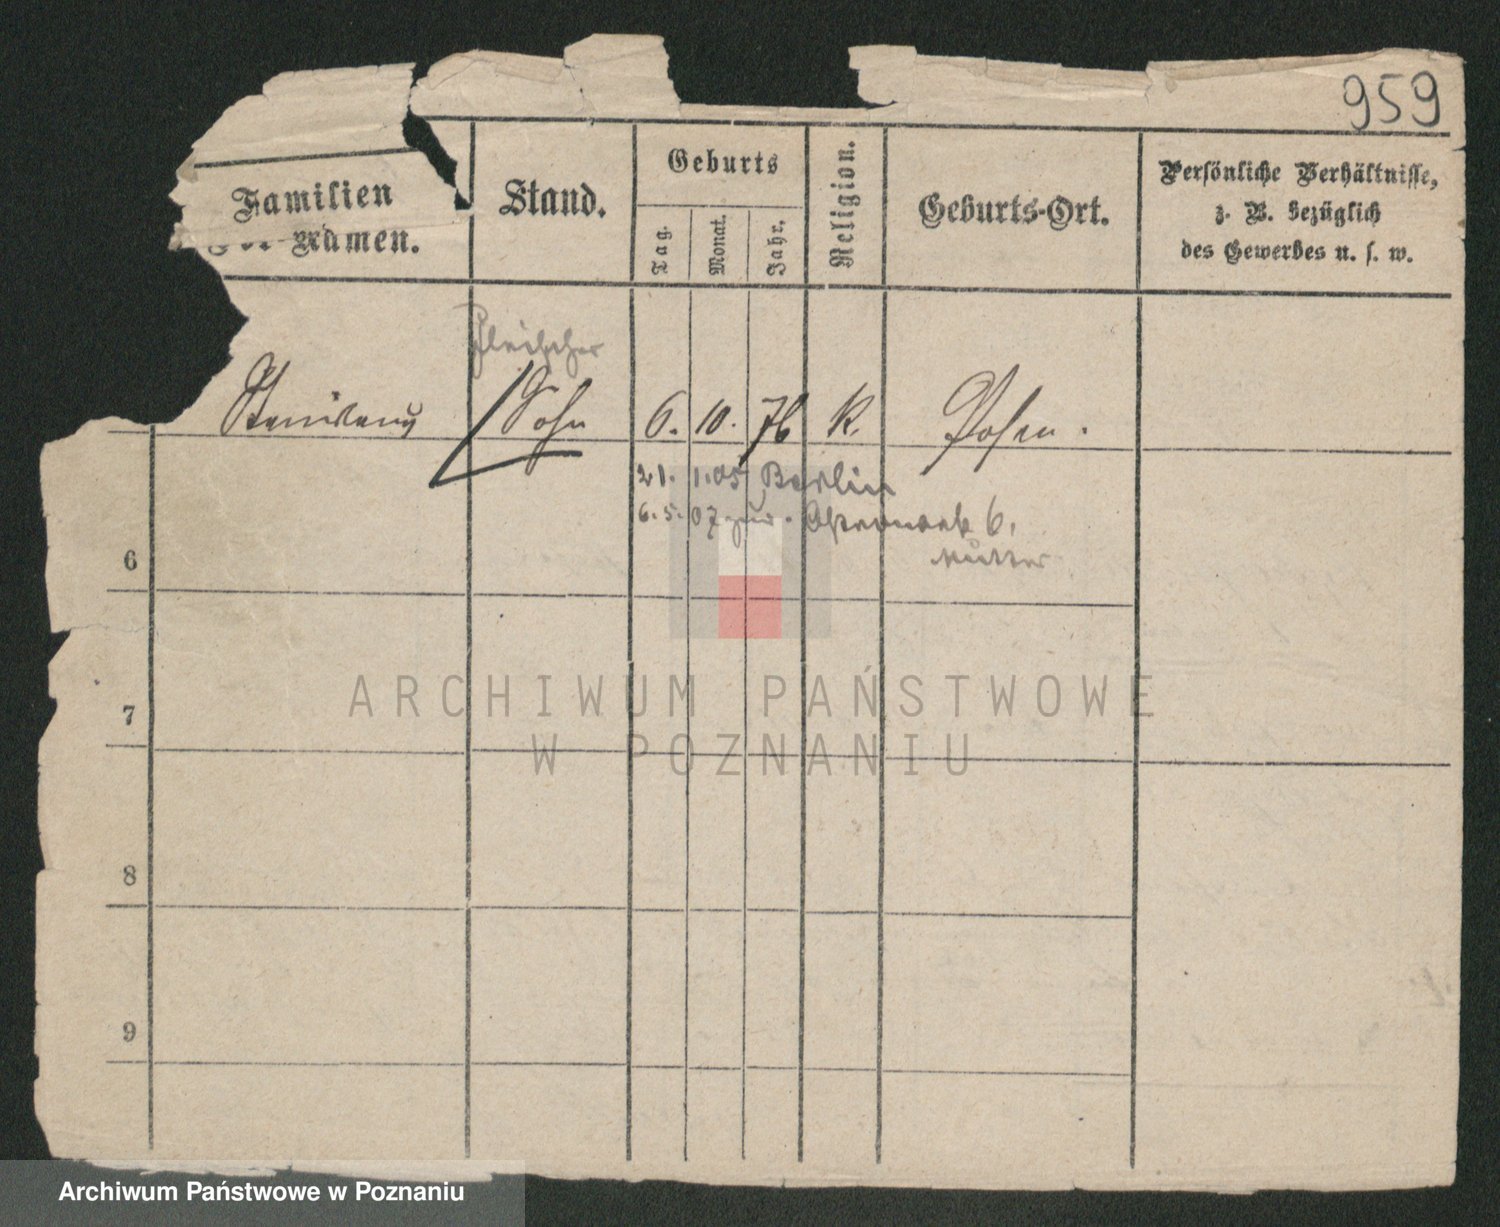 959
Familien
Vor-Namen.
Stand.
Geburts
Tag.
Monat.
Jahr.
Religion.
Geburts-Ort.
Persönliche Verhältnisse,
z. B. bezüglich
des Gewerbes u. s. w.
Fleischer
Stanislaus
Sohn
6. 10. 76
K.
Posen.
21. 1.05 Berlin
6.5.07 zur. 6.
Mutter
6
7
8
9
ARCHIWUM PAŃSTWOWE
W POZNANIU
Archiwum Państwowe w Poznaniu